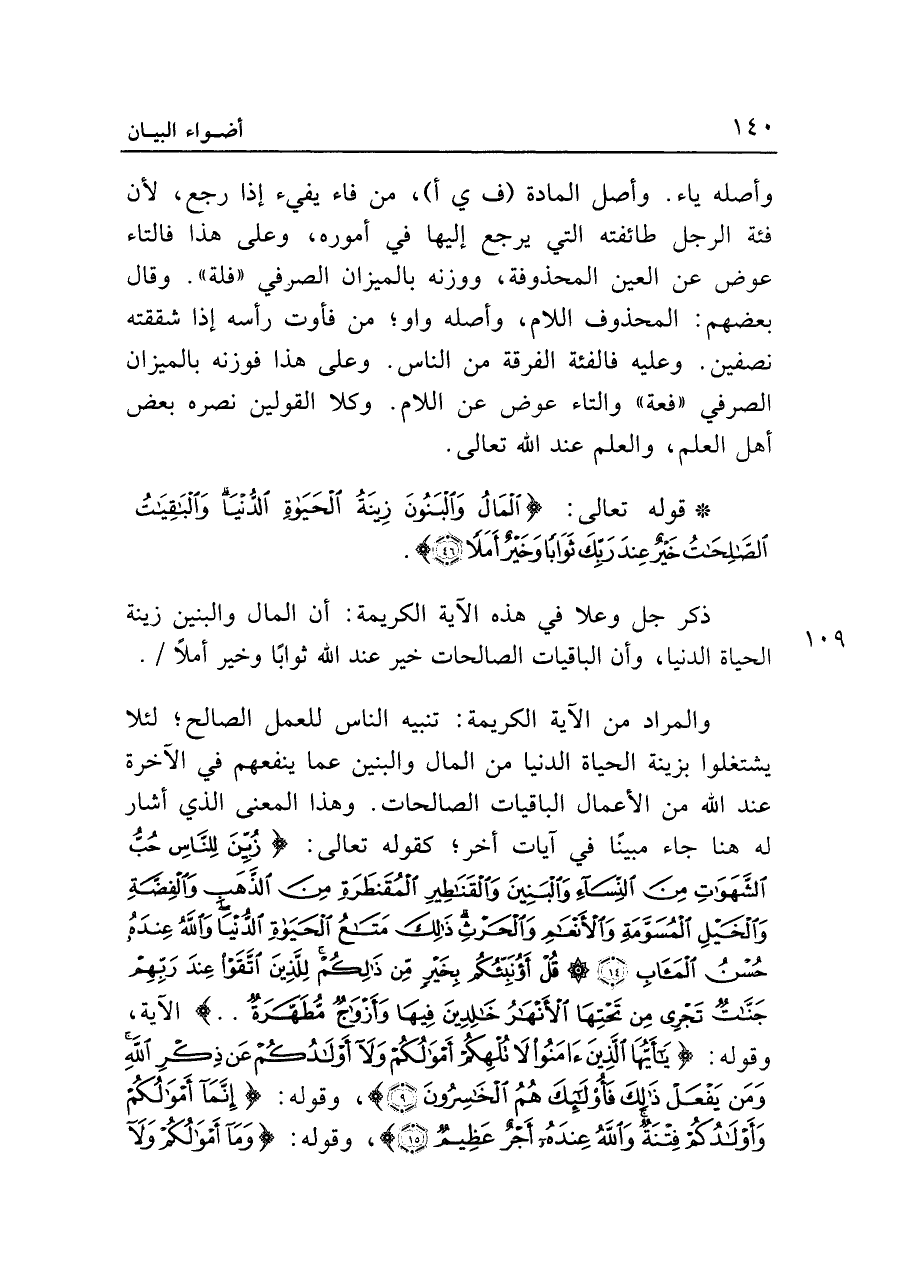 ١٤٠ أضواء البيان
وأصله ياء. وأصل المادة (ف ي أ)، من فاء يفيء إذا رجع، لأن
فئة الرجل طائفته التي يرجع إليها في أموره، وعلى هذا فالتاء
عوض عن العين المحذوفة، ووزنه بالميزان الصرفي «فلة». وقال
بعضهم: المحذوف اللام، وأصله واو؛ من فأوت رأسه إذا شققته
نصفين. وعليه فالفئة الفرقة من الناس. وعلى هذا فوزنه بالميزان
الصرفي «فعة» والتاء عوض عن اللام. وكلا القولين نصره بعض
أهل العلم، والعلم عند الله تعالى.
* قوله تعالى: ﴿ٱلۡمَالُ وَٱلۡبَنُونَ زِينَةُ ٱلۡحَيَوٰةِ ٱلدُّنۡيَاۖ وَٱلۡبَٰقِيَٰتُ
ٱلصَّٰلِحَٰتُ خَيۡرٌ عِندَ رَبِّكَ ثَوَابٗا وَخَيۡرٌ أَمَلٗا ٤٦﴾.
ذكر جل وعلا في هذه الآية الكريمة: أن المال والبنين زينة
١٠٩
الحياة الدنيا، وأن الباقيات الصالحات خير عند الله ثوابًا وخير أملاً / .
والمراد من الآية الكريمة: تنبيه الناس للعمل الصالح؛ لئلا
يشتغلوا بزينة الحياة الدنيا من المال والبنين عما ينفعهم في الآخرة
عند الله من الأعمال الباقيات الصالحات. وهذا المعنى الذي أشار
له هنا جاء مبينًا في آيات أخر؛ كقوله تعالى: ﴿زُيِّنَ لِلنَّاسِ حُبُّ
ٱلشَّهَوَٰتِ مِنَ ٱلنِّسَآءِ وَٱلۡبَنِينَ وَٱلۡقَنَٰطِيرِ ٱلۡمُقَنطَرَةِ مِنَ ٱلذَّهَبِ وَٱلۡفِضَّةِ
وَٱلۡخَيۡلِ ٱلۡمُسَوَّمَةِ وَٱلۡأَنۡعَٰمِ وَٱلۡحَرۡثِۗ ذَٰلِكَ مَتَٰعُ ٱلۡحَيَوٰةِ ٱلدُّنۡيَاۖ وَٱللَّهُ عِندَهُۥ
حُسۡنُ ٱلۡمَـَٔابِ ١٤ ۞ قُلۡ أَؤُنَبِّئُكُم بِخَيۡرٖ مِّن ذَٰلِكُمۡۖ لِلَّذِينَ ٱتَّقَوۡاْ عِندَ رَبِّهِمۡ
جَنَّٰتٞ تَجۡرِي مِن تَحۡتِهَا ٱلۡأَنۡهَٰرُ خَٰلِدِينَ فِيهَا وَأَزۡوَٰجٞ مُّطَهَّرَةٞ ..﴾ الآية،
وقوله: ﴿يَٰٓأَيُّهَا ٱلَّذِينَ ءَامَنُواْ لَا تُلۡهِكُمۡ أَمۡوَٰلُكُمۡ وَلَآ أَوۡلَٰدُكُمۡ عَن ذِكۡرِ ٱللَّهِۚ
وَمَن يَفۡعَلۡ ذَٰلِكَ فَأُوْلَٰٓئِكَ هُمُ ٱلۡخَٰسِرُونَ ٩﴾، وقوله: ﴿إِنَّمَآ أَمۡوَٰلُكُمۡ
وَأَوۡلَٰدُكُمۡ فِتۡنَةٞۚ وَٱللَّهُ عِندَهُۥٓ أَجۡرٌ عَظِيمٞ ١٥﴾، وقوله: ﴿وَمَآ أَمۡوَٰلُكُمۡ وَلَآ